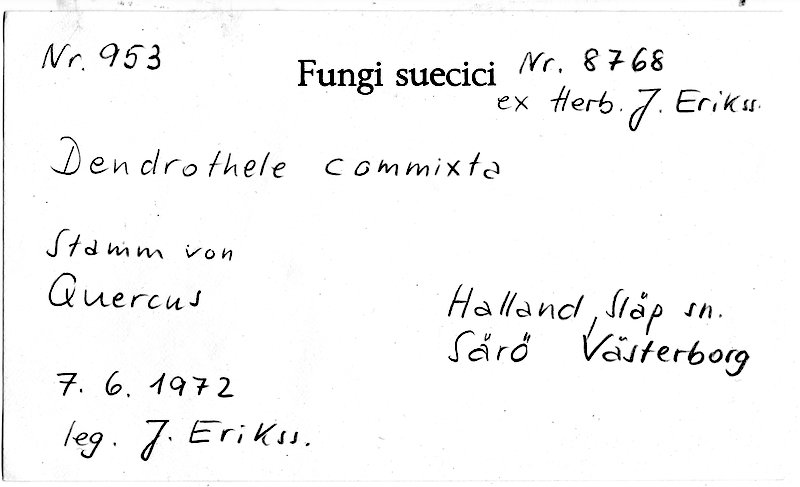 Nr. 953
Fungi suecici Nr. 8768
ex Herb. J. Erikss.
Dendrothele commixta
Stamm von
Quercus
Halland, Släp sn.
Särö Västerborg
7. 6. 1972
leg. J. Erikss.